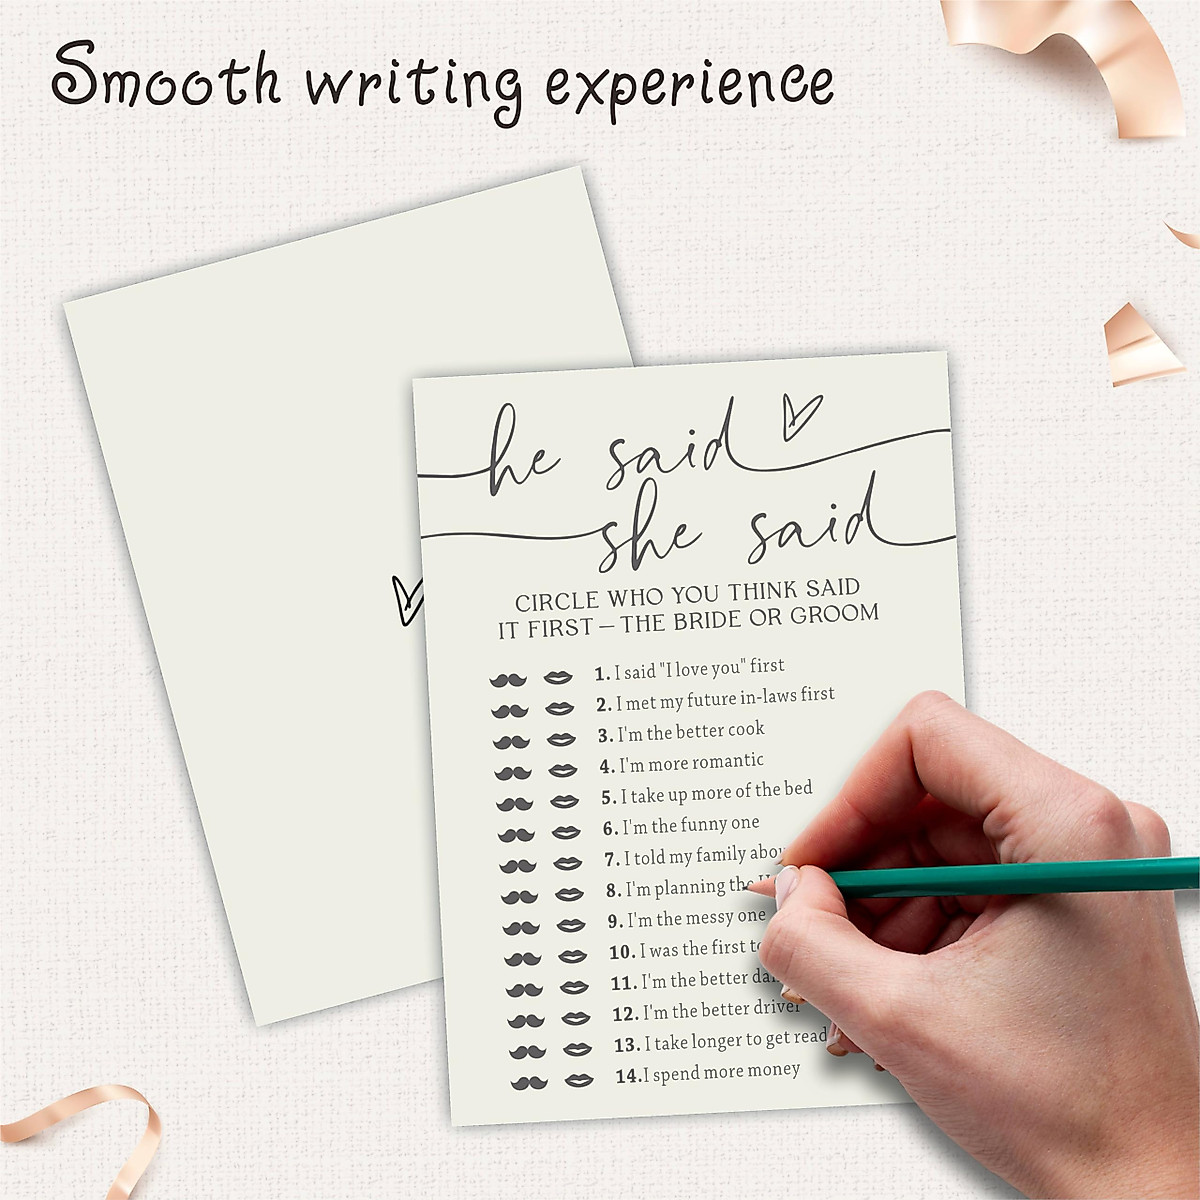 Smooth writing experience
he said
she said
CIRCLE WHO YOU THINK SAID
IT FIRST – THE BRIDE OR GROOM
1. I said "I love you" first
2. I met my future in-laws first
3. I'm the better cook
4. I'm more romantic
5. I take up more of the bed
6. I'm the funny one
7. I told my family
8. I'm planning the
9. I'm the messy one
10. I was the first
11. I'm the better
12. I'm the better driver
13. I take longer to get
14. I spend more money